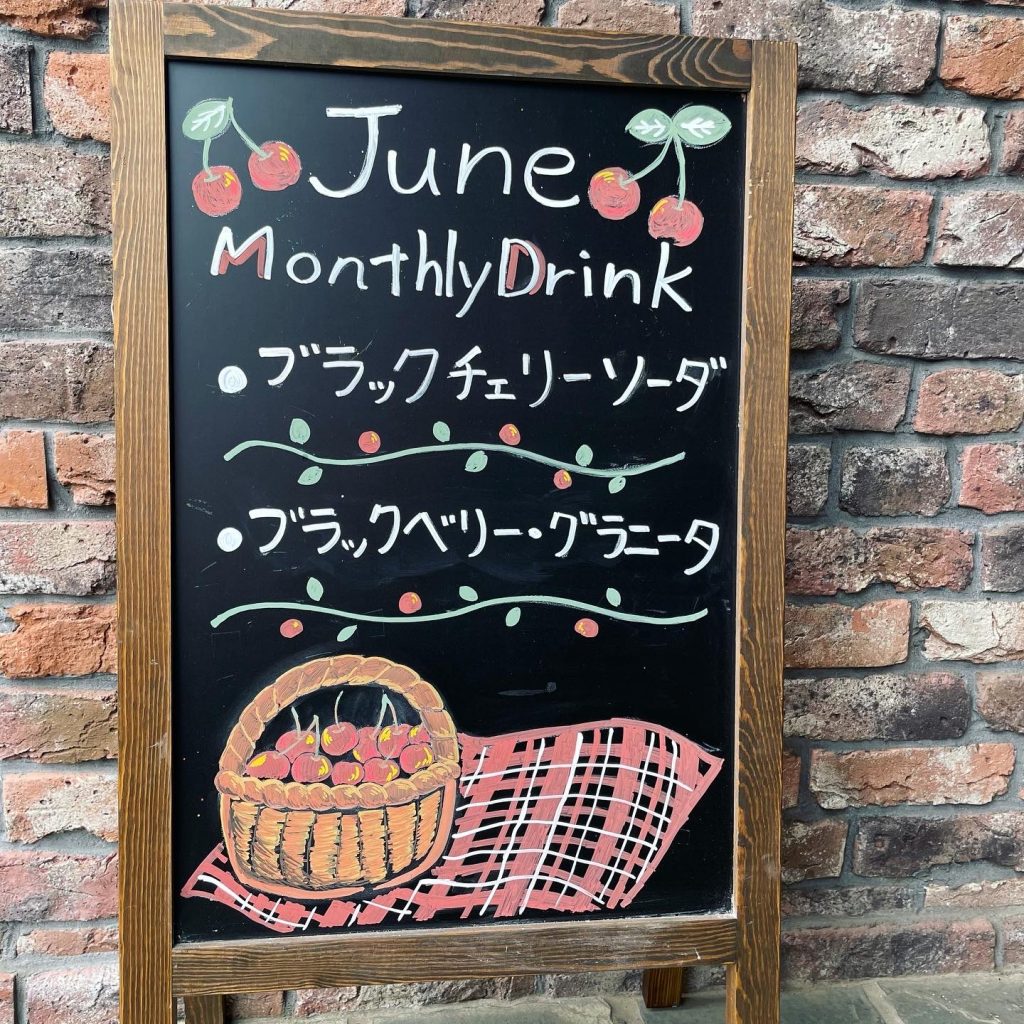 June
Monthly Drink
●ブラックチェリーソーダ
●ブラックベリー・グラニータ